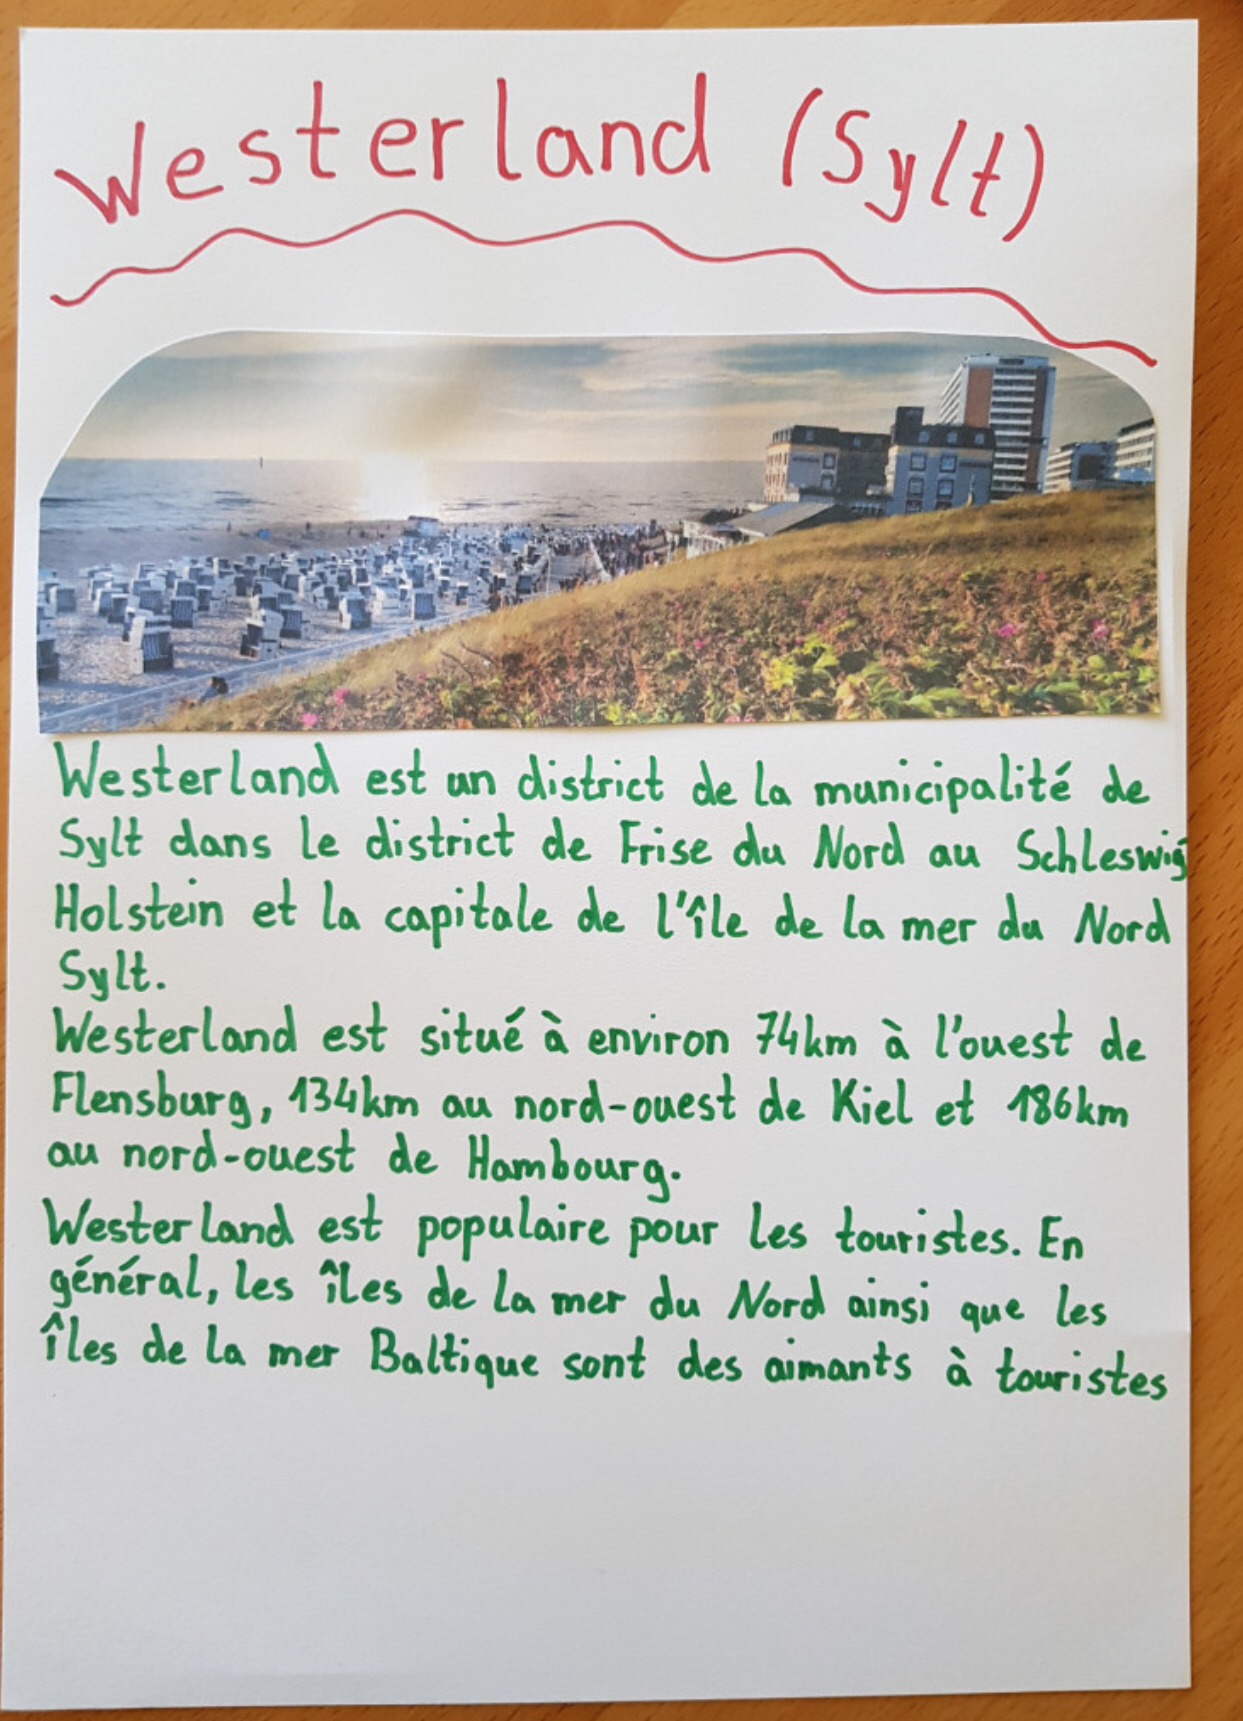 Westerland (Sylt)
Westerland est un district de la municipalité de
Sylt dans le district de Frise du Nord au Schleswig
Holstein et la capitale de l'île de la mer du Nord
Sylt.
Westerland est situé à environ 74km à l'ouest de
Flensburg, 134km au nord-ouest de Kiel et 186km
au nord-ouest de Hambourg.
Westerland est populaire pour les touristes. En
général, les îles de la mer du Nord ainsi que les
îles de la mer Baltique sont des aimants à touristes